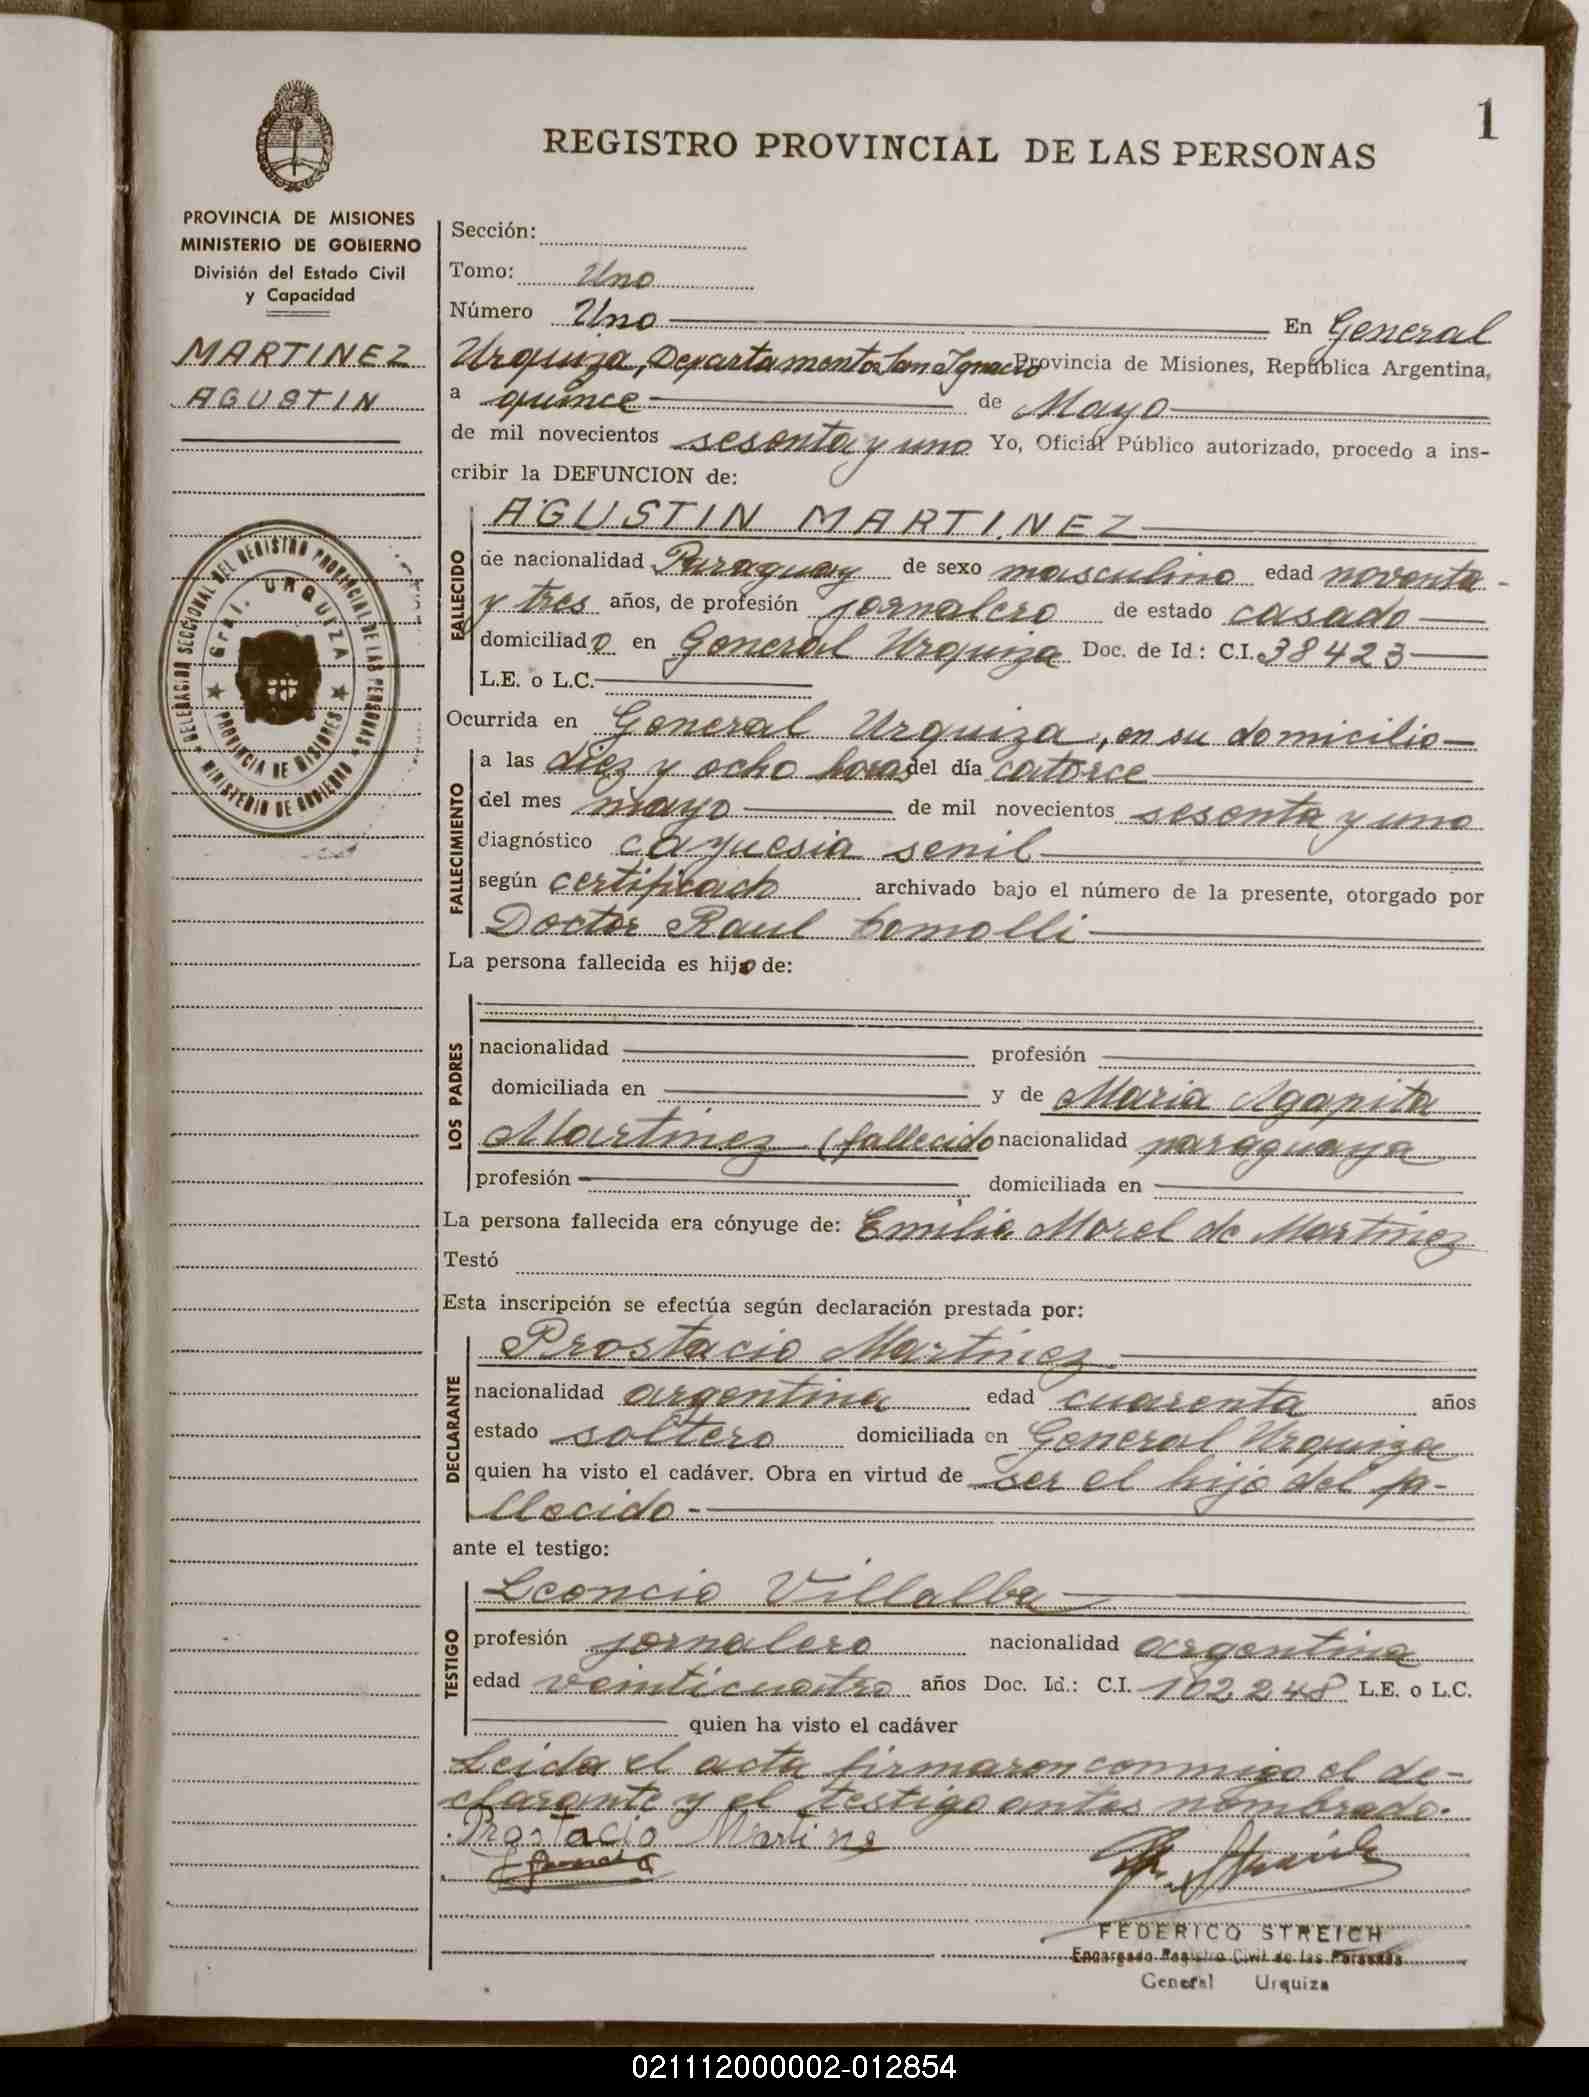 1
REGISTRO PROVINCIAL DE LAS PERSONAS
PROVINCIA DE MISIONES
MINISTERIO DE GOBIERNO
División del Estado Civil
y Capacidad
MARTINEZ
AGUSTIN
DELEGACION SECCIONAL DEL REGISTRO PROVINCIAL DE LAS PERSONAS
MINISTERIO DE GOBIERNO
Gral. URQUIZA
PROVINCIA DE MISIONES
Sección:
Tomo: Uno
Número Uno En General
Urquiza, Departamento San Ignacio Provincia de Misiones, República Argentina,
a quince de Mayo
de mil novecientos sesenta y uno Yo, Oficial Público autorizado, procedo a ins-
cribir la DEFUNCION de:
FALLECIDO
AGUSTIN MARTINEZ
de nacionalidad Paraguay de sexo masculino edad noventa -
y tres años, de profesión jornalero de estado casado
domiciliado en General Urquiza Doc. de Id: C.I. 38423
L.E. o L.C.
Ocurrida en General Urquiza, en su domicilio
FALLECIMIENTO
a las diez y ocho horas del día catorce
del mes mayo de mil novecientos sesenta y uno
diagnóstico caquesia senil
según certificado archivado bajo el número de la presente, otorgado por
Doctor Raul Comolli
La persona fallecida es hijo de:
LOS PADRES
nacionalidad profesión
domiciliada en y de Maria Agapita
Martinez (fallecido nacionalidad paraguaya
profesión domiciliada en
La persona fallecida era cónyuge de: Emilia Morel de Martinez
Testó
Esta inscripción se efectúa según declaración prestada por:
DECLARANTE
Prostacio Martinez
nacionalidad argentina edad cuarenta años
estado soltero domiciliada en General Urquiza
quien ha visto el cadáver. Obra en virtud de ser el hijo del fa-
llecido -
ante el testigo:
TESTIGO
Leoncio Villalba
profesión jornalero nacionalidad argentina
edad veinticuatro años Doc. Id.: C.I. 102248 L.E. o L.C.
quien ha visto el cadáver
Leida el acta firmaron conmigo el de-
clarante y el testigo antes nombrado.
Prostacio Martines
FEDERICO STREICH
Encargado Registro Civil de las Personas
General Urquiza
021112000002-012854